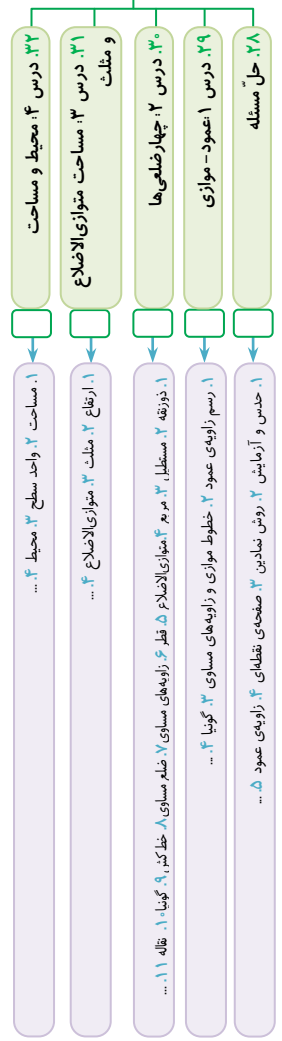 ۲۸. حلّ مسئله
۱. حدس و آزمایش ۲. روش نمادین ۳. صفحه‌ی نقطه‌ای ۴. زاویه‌ی عمود ۵. ...
۲۹. درس ۱:عمود - موازی
۱. رسم زاویه‌ی عمود ۲. خطوط موازی و زاویه‌های مساوی ۳. گونیا ۴. ...
۳۰. درس ۲: چهارضلعی‌ها
۱. ذوزنقه ۲. مستطیل ۳. مربع ۴.متوازی‌الاضلاع ۵. قطر ۶. زاویه‌های مساوی ۷. ضلع مساوی ۸. خط کش ۹. گونیا ۱۰. نقاله ۱۱. ...
۳۱. درس ۳: مساحت متوازی‌الاضلاع
و مثلث
۱. ارتفاع ۲. مثلث ۳. متوازی‌الاضلاع ۴. ...
۳۲. درس ۴: محیط و مساحت
۱. مساحت ۲. واحد سطح ۳. محیط ۴. ...